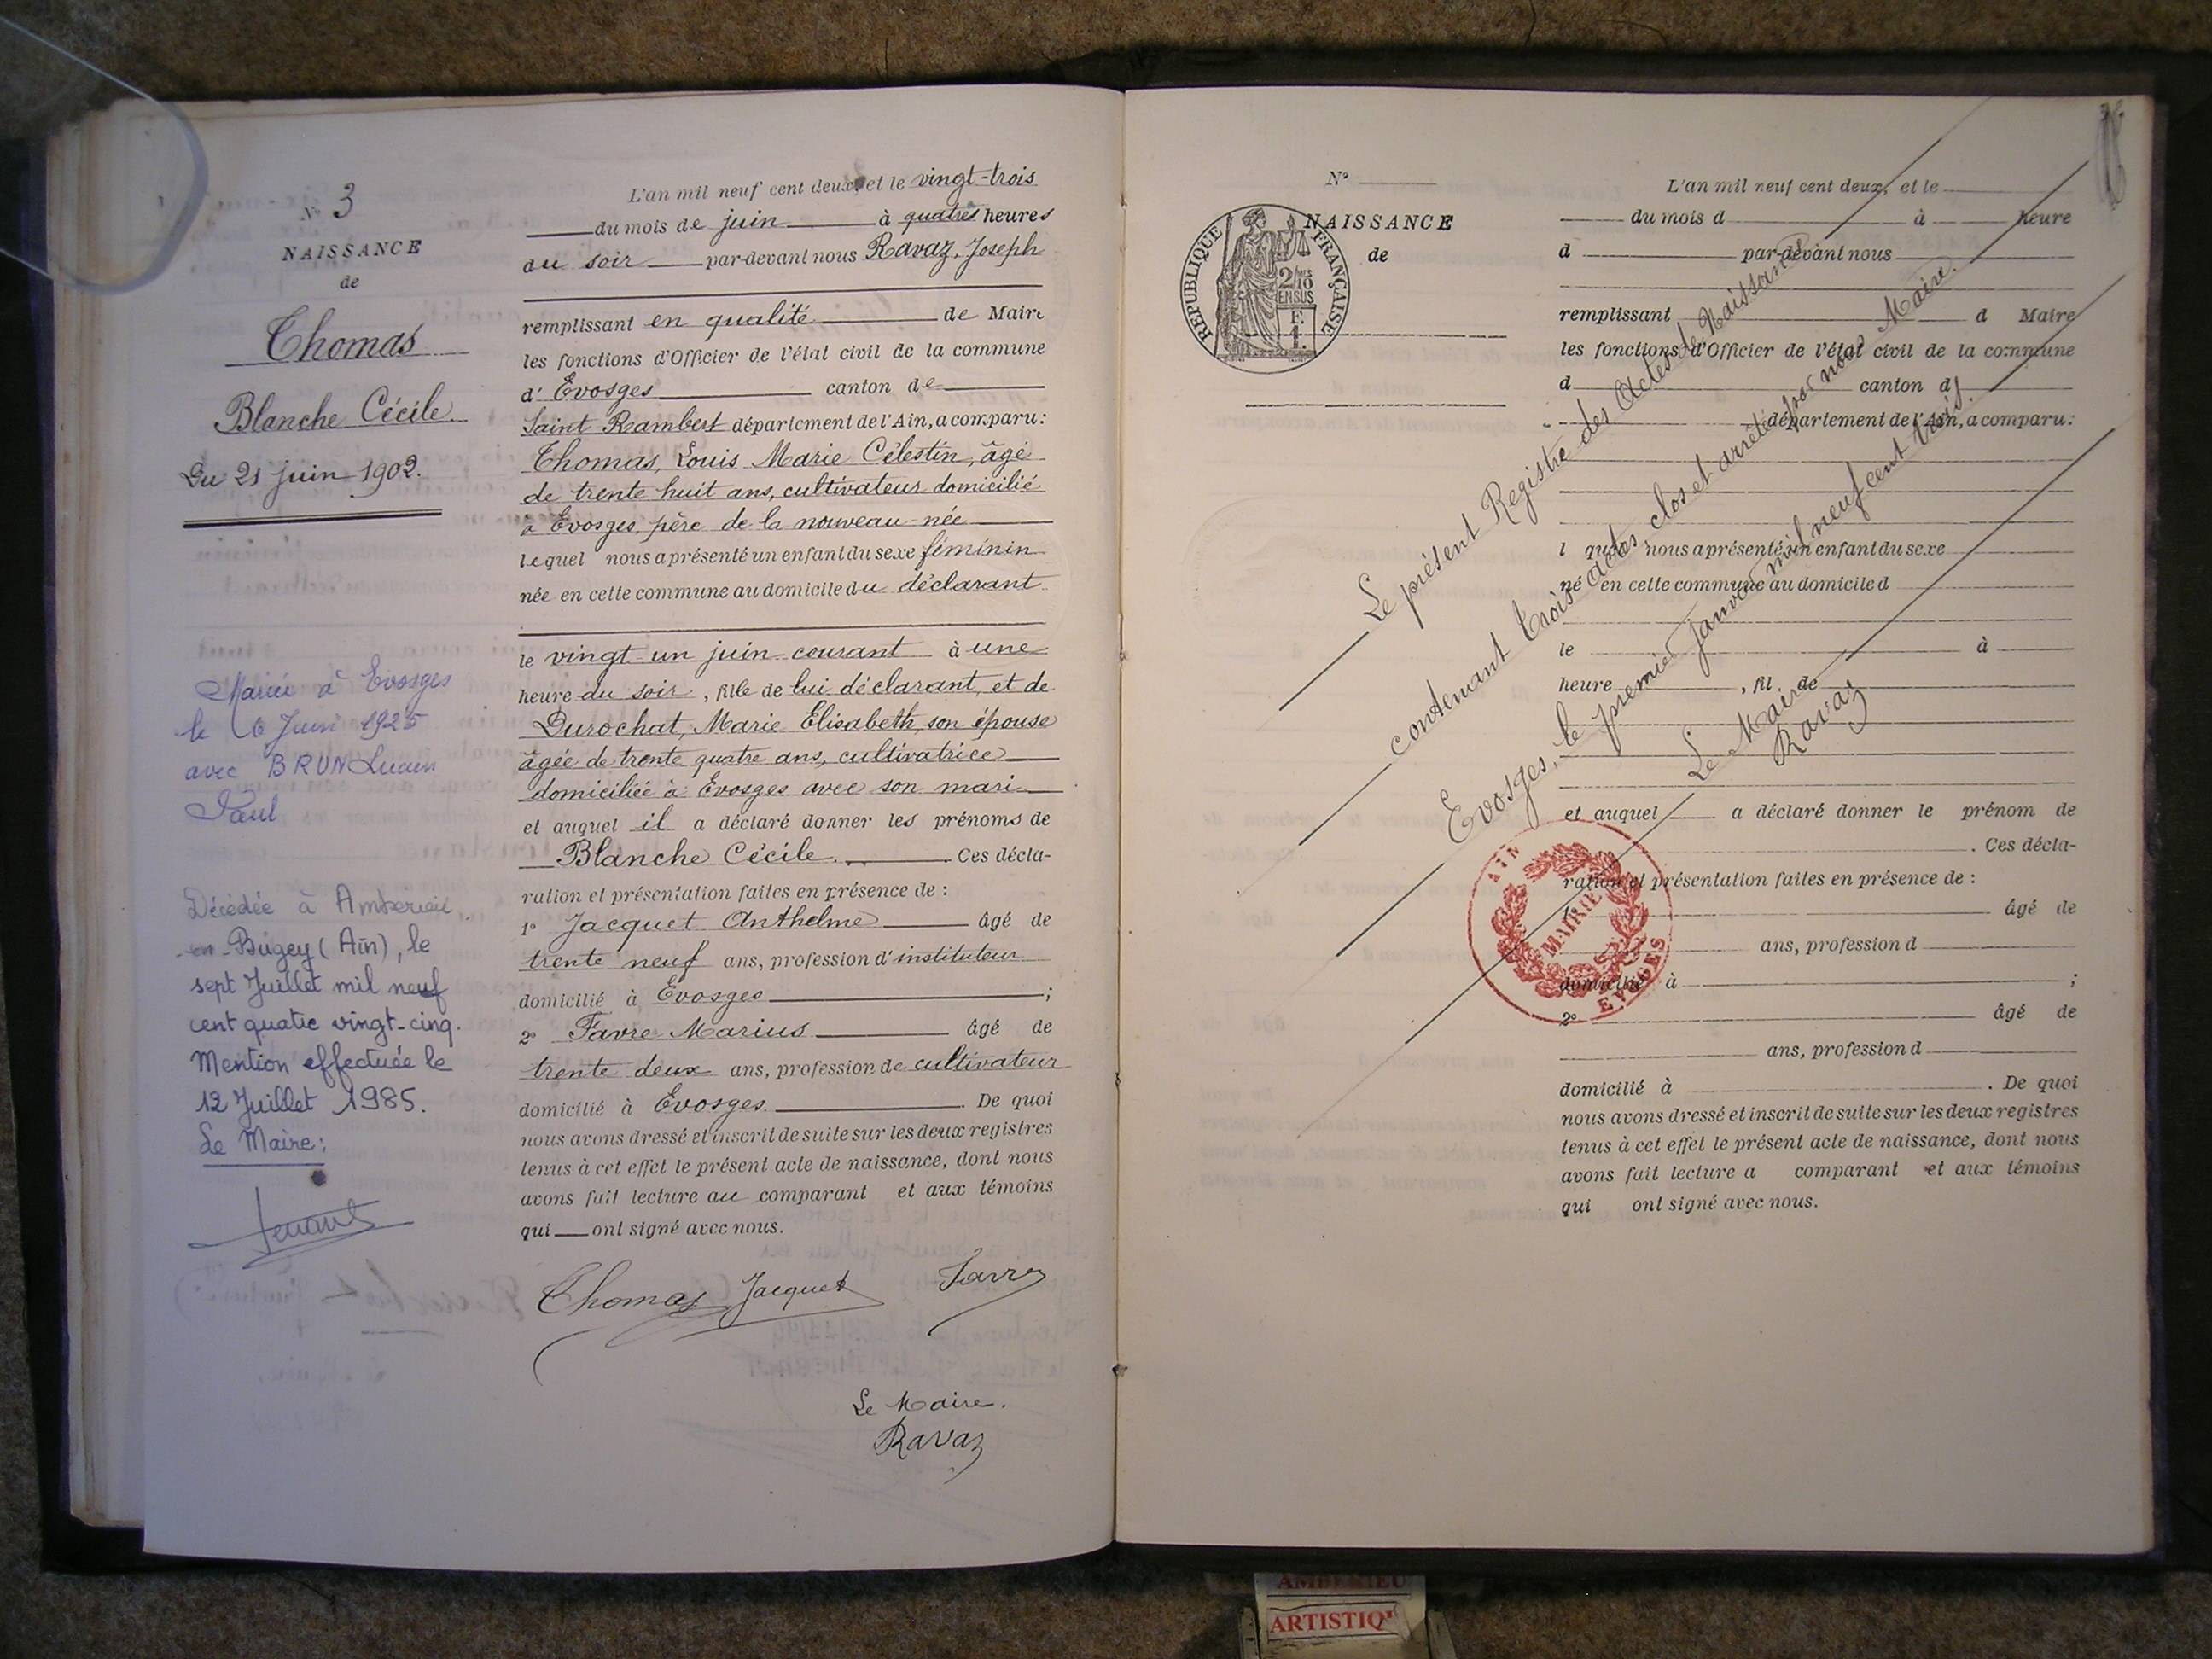 N° 3
NAISSANCE
de
Thomas
Blanche Cécile
Du 21 juin 1902.
Mariée à Evosges
le 6 Juin 1925
avec BRUN Lucien
Paul
Décédée à Ambérieu
en Bugey (Ain), le
sept Juillet mil neuf
cent quatre vingt-cinq.
Mention effectuée le
12 Juillet 1985.
Le Maire:
L'an mil neuf cent deux, et le vingt-trois
du mois de juin à quatre heures
du soir par-devant nous Ravaz, Joseph
remplissant en qualité de Maire
les fonctions d'Officier de l'état civil de la commune
d'Evosges canton de
Saint Rambert département de l'Ain, a comparu:
Thomas, Louis Marie Célestin, âgé
de trente huit ans, cultivateur domicilié
à Evosges, père de la nouveau-née
lequel nous a présenté un enfant du sexe féminin
née en cette commune au domicile du déclarant
le vingt-un juin courant à une
heure du soir, fille de lui déclarant, et de
Durochat, Marie Elisabeth, son épouse
âgée de trente quatre ans, cultivatrice
domiciliée à Evosges avec son mari
et auquel il a déclaré donner les prénoms de
Blanche Cécile. Ces décla-
ration et présentation faites en présence de :
1° Jacquet Anthelme âgé de
trente neuf ans, profession d'instituteur
domicilié à Evosges ;
2° Favre Marius âgé de
trente deux ans, profession de cultivateur
domicilié à Evosges. De quoi
nous avons dressé et inscrit de suite sur les deux registres
tenus à cet effet le présent acte de naissance, dont nous
avons fait lecture au comparant et aux témoins
qui ont signé avec nous.
Thomas Jacquet Favre
Le Maire.
Ravaz
N°
NAISSANCE
de
REPUBLIQUE FRANÇAISE
2/10
EN SUS
F.
1.
L'an mil neuf cent deux, et le
du mois d à heure
d par-devant nous
remplissant d Maire
les fonctions d'Officier de l'état civil de la commune
d canton d
département de l'Ain, a comparu:
l quel nous a présenté un enfant du sexe
né en cette commune au domicile d
le à
heure , fil de
et auquel a déclaré donner le prénom de
. Ces décla-
ration et présentation faites en présence de :
1° âgé de
ans, profession d
domicilié à ;
2° âgé de
ans, profession d
domicilié à . De quoi
nous avons dressé et inscrit de suite sur les deux registres
tenus à cet effet le présent acte de naissance, dont nous
avons fait lecture a comparant et aux témoins
qui ont signé avec nous.
Le présent Registre des Actes de Naissance
contenant trois actes, clos et arrêté par nous Maire.
Evosges, le premier janvier mil neuf cent trois.
Le Maire
Ravaz
AIN
MAIRIE
EVOSGES
AMBERIEU
ARTISTIQ